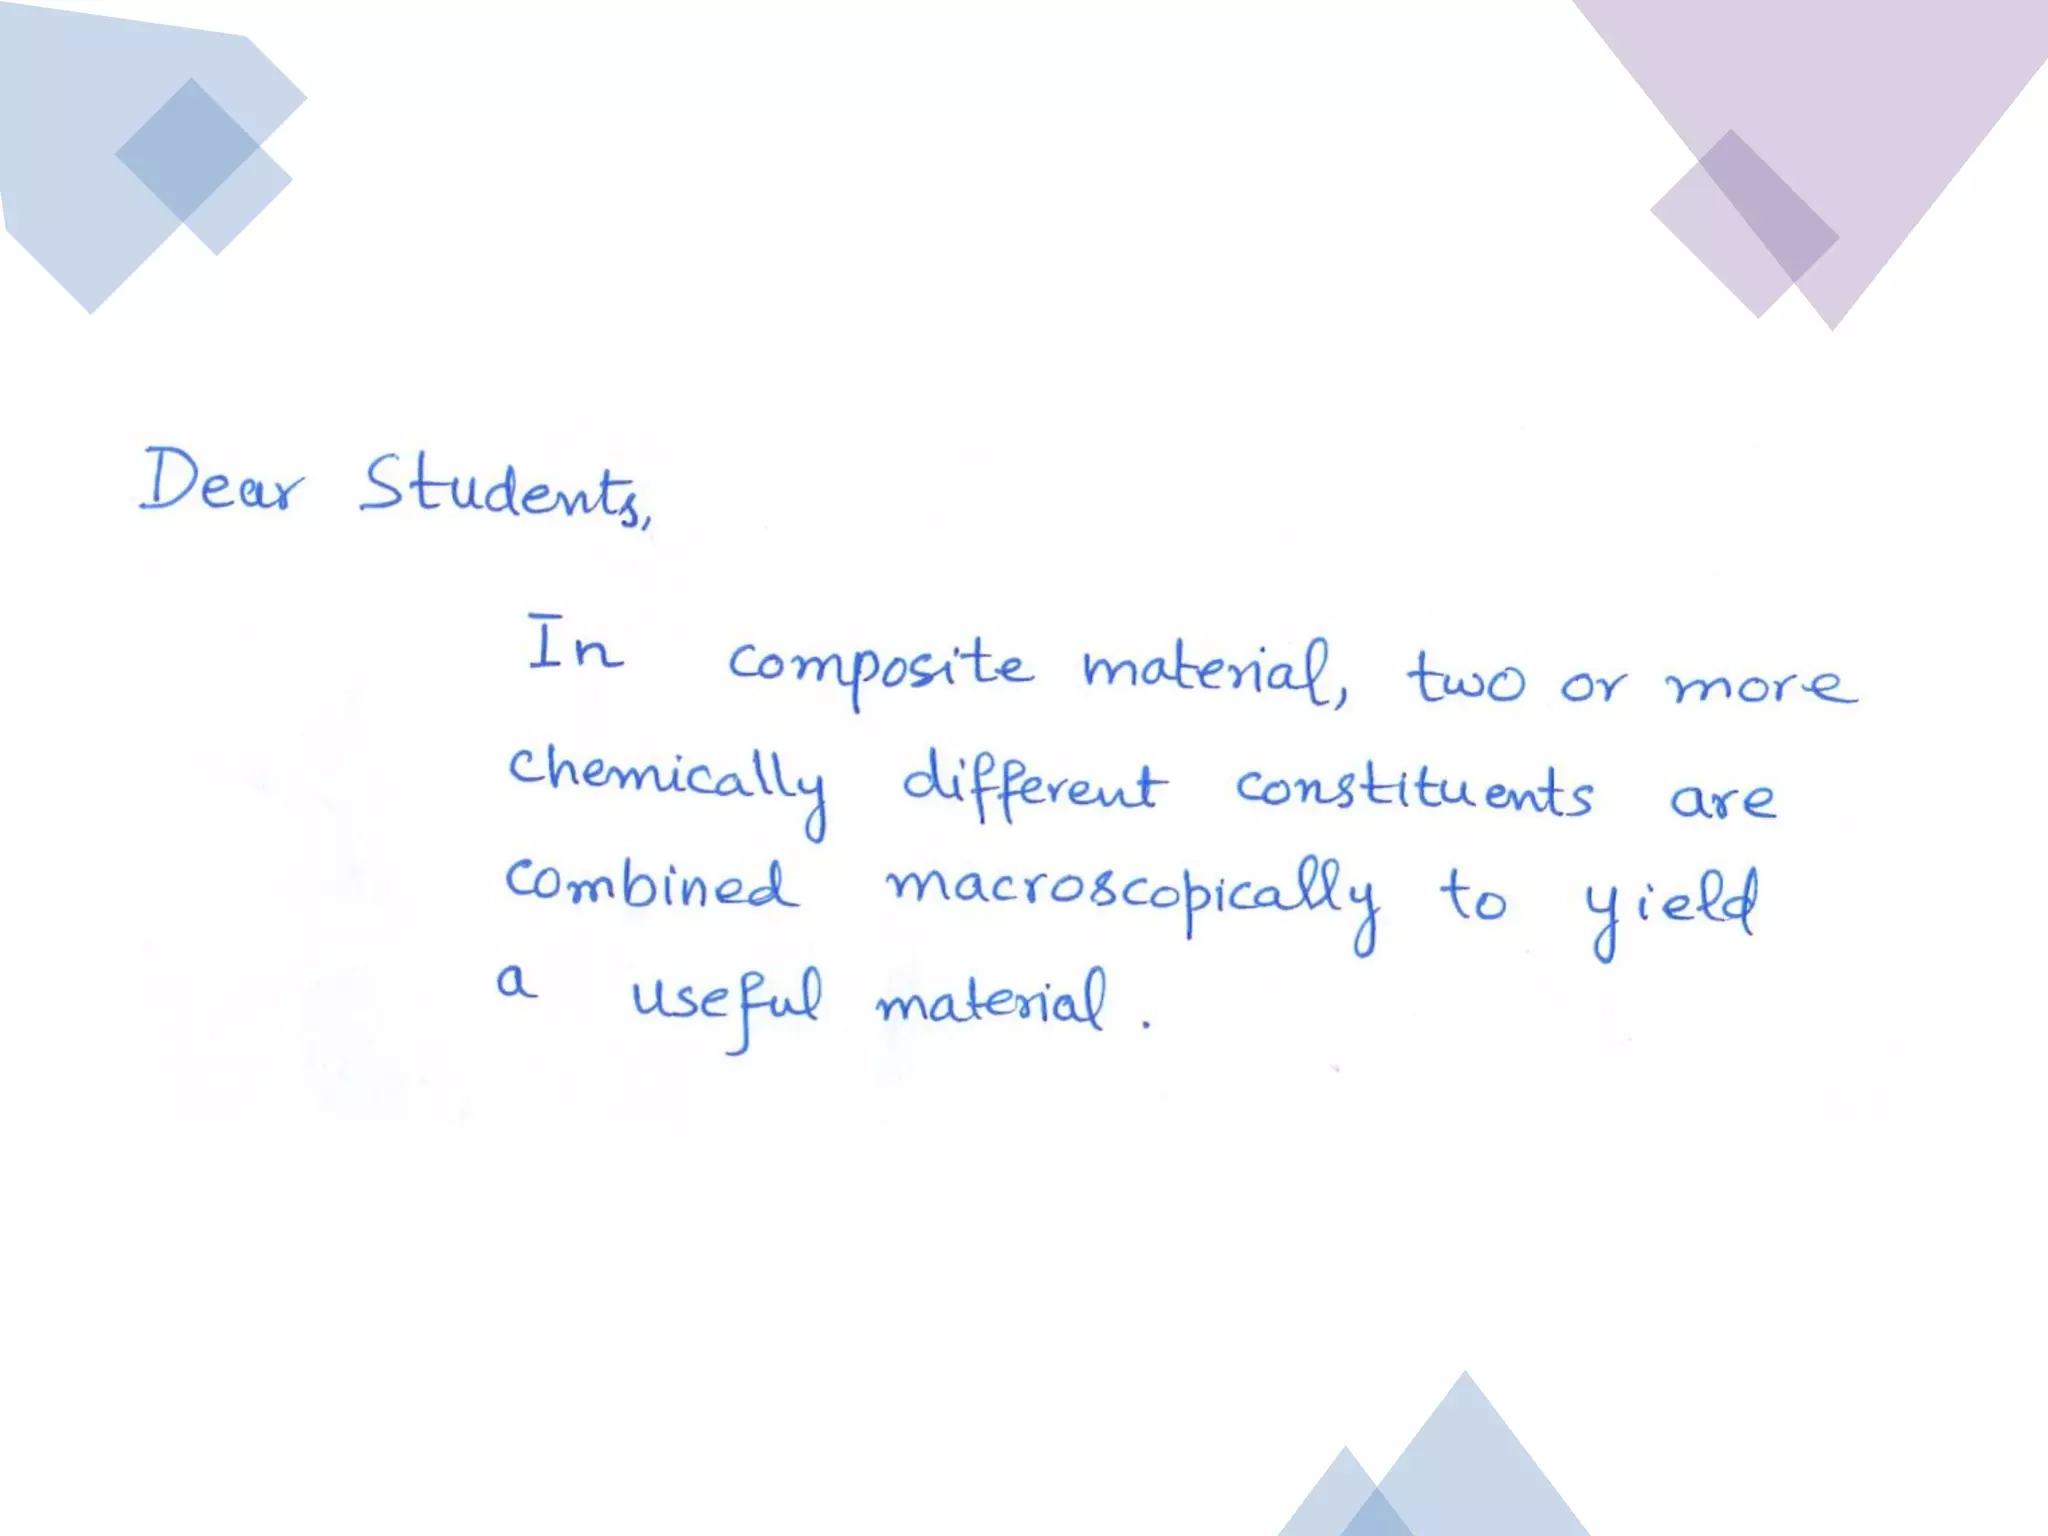 Dear Students,
In composite material, two or more
chemically different constituents are
combined macroscopically to yield
a useful material.